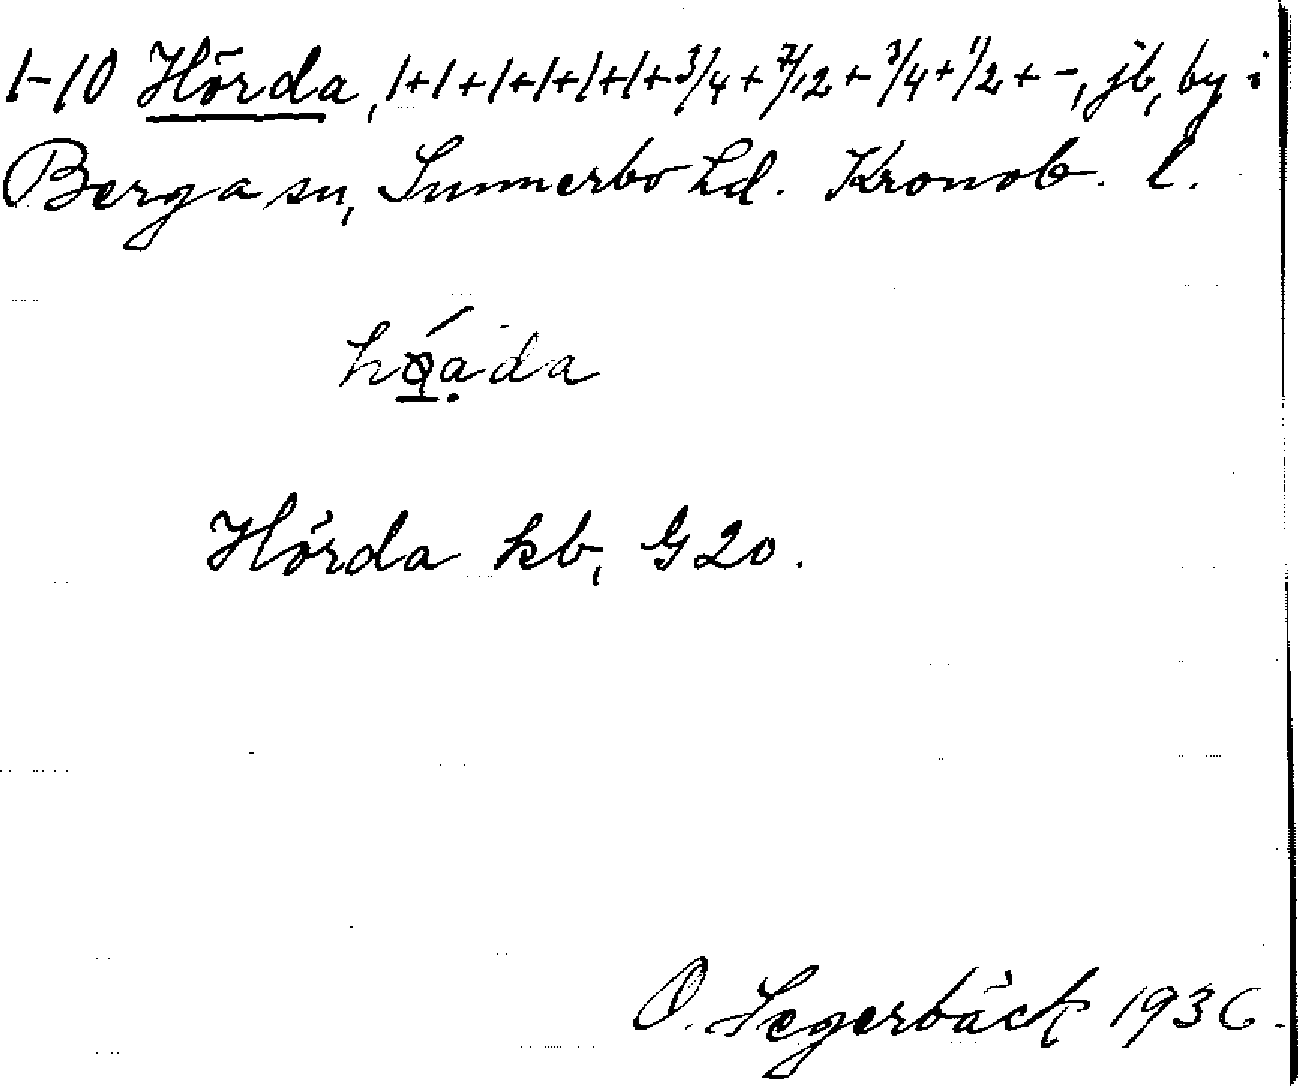 1-10 Hörda, 1+1+1+1+1+1+3/4+7/12+3/4+1/2+-, jb, by i
Berga sn, Sunnerbo hd. Kronob. l.
Hörda kb, G 20.
O. Segerbäck 1936.